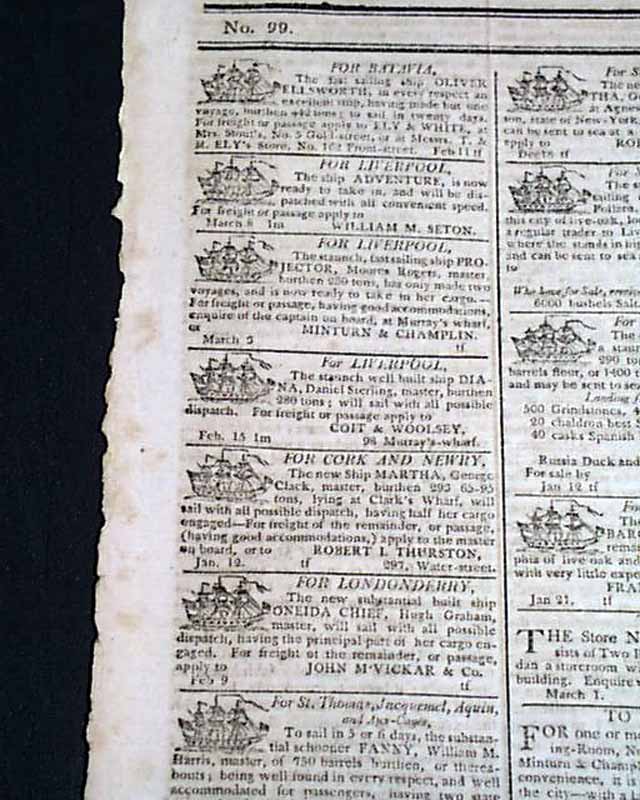 No. 99.
FOR BATAVIA,
The fast sailing ship OLIVER
ELLSWORTH, in every respect an
excellent ship, having made but one
voyage, burthen tons; to sail in twenty days.
For freight or passage apply to ELY & WHITE, at
Mrs. Stout's, No. 5 Gold-street, or at Messrs. T. &
M. ELY's Store, No. Front-street. Feb 11 tf
FOR LIVERPOOL,
The ship ADVENTURE, is now
ready to take in, and will be dis-
patched with all convenient speed.
For freight or passage apply to
March 8 1m WILLIAM M. SETON.
FOR LIVERPOOL,
The staunch, fast sailing ship PRO-
JECTOR, Moores Rogers, master,
burthen 250 tons, has only made two
voyages, and is now ready to take in her cargo.—
For freight or passage, having good accommodations,
enquire of the captain on board, at Murray's wharf,
or MINTURN & CHAMPLIN.
March 3 tf.
For LIVERPOOL,
The staunch well built ship DIA-
NA, Daniel Sterling, master, burthen
280 tons; will sail with all possible
dispatch. For freight or passage apply to
COIT & WOOLSEY,
Feb. 15 1m 98 Murray's-wharf.
FOR CORK AND NEWRY,
The new Ship MARTHA, George
Clack, master, burthen 295 65-95
tons, lying at Clark's Wharf, will
sail with all possible dispatch, having half her cargo
engaged—For freight of the remainder, or passage,
(having good accommodations,) apply to the master
on board, or to ROBERT I. THURSTON,
Jan. 12. tf 297, Water-street.
FOR LONDONDERRY,
The new substantial built ship
ONEIDA CHIEF, Hugh Graham,
master, will sail with all possible
dispatch, having the principal part of her cargo en-
gaged. For freight of the remainder, or passage,
apply to JOHN M'VICKAR & Co.
Feb 9 tf
For St. Thomas, Jacquemel, Aquin,
and Aux-Cayes,
To sail in 5 or 6 days, the substan-
tial schooner FANNY, William M.
Harris, master, of 750 barrels burthen, or therea-
bouts; being well found in every respect, and well
accommodated for passengers, having two state
For S
The ne
THA, G
at Agnew
ton, state of New-York,
can be sent to sea at a
apply to ROB
Dec18 tf
The
sailing
this city of live-oak,
a regular trader to Liv
where she stands in
and can be sent to sea
to
Who have for Sale,
6000 bushels Sal
For
The
a staun
290 to
barrels flour, or 1400 t
and may be sent to se
Landing f
500 Grindstones,
20 chaldron best S
40 casks Spanish
Russia Duck and
For sale by
Jan 12 tf
BARQ
remar
phia of live-oak and
with very little expe
FRA
Jan 21. tf
THE Store N
sists of Two
dan a storeroom w
building. Enquire
March 1.
TO
FOR one or mo
ing-Room, N
Minturn & Champl
convenience, it is
the city—with a l